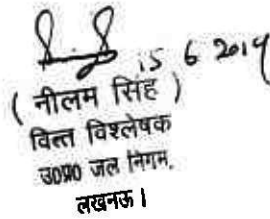 15 6 2019
( नीलम सिंह )
वित्त विश्लेषक
उ0प्र0 जल निगम,
लखनऊ।